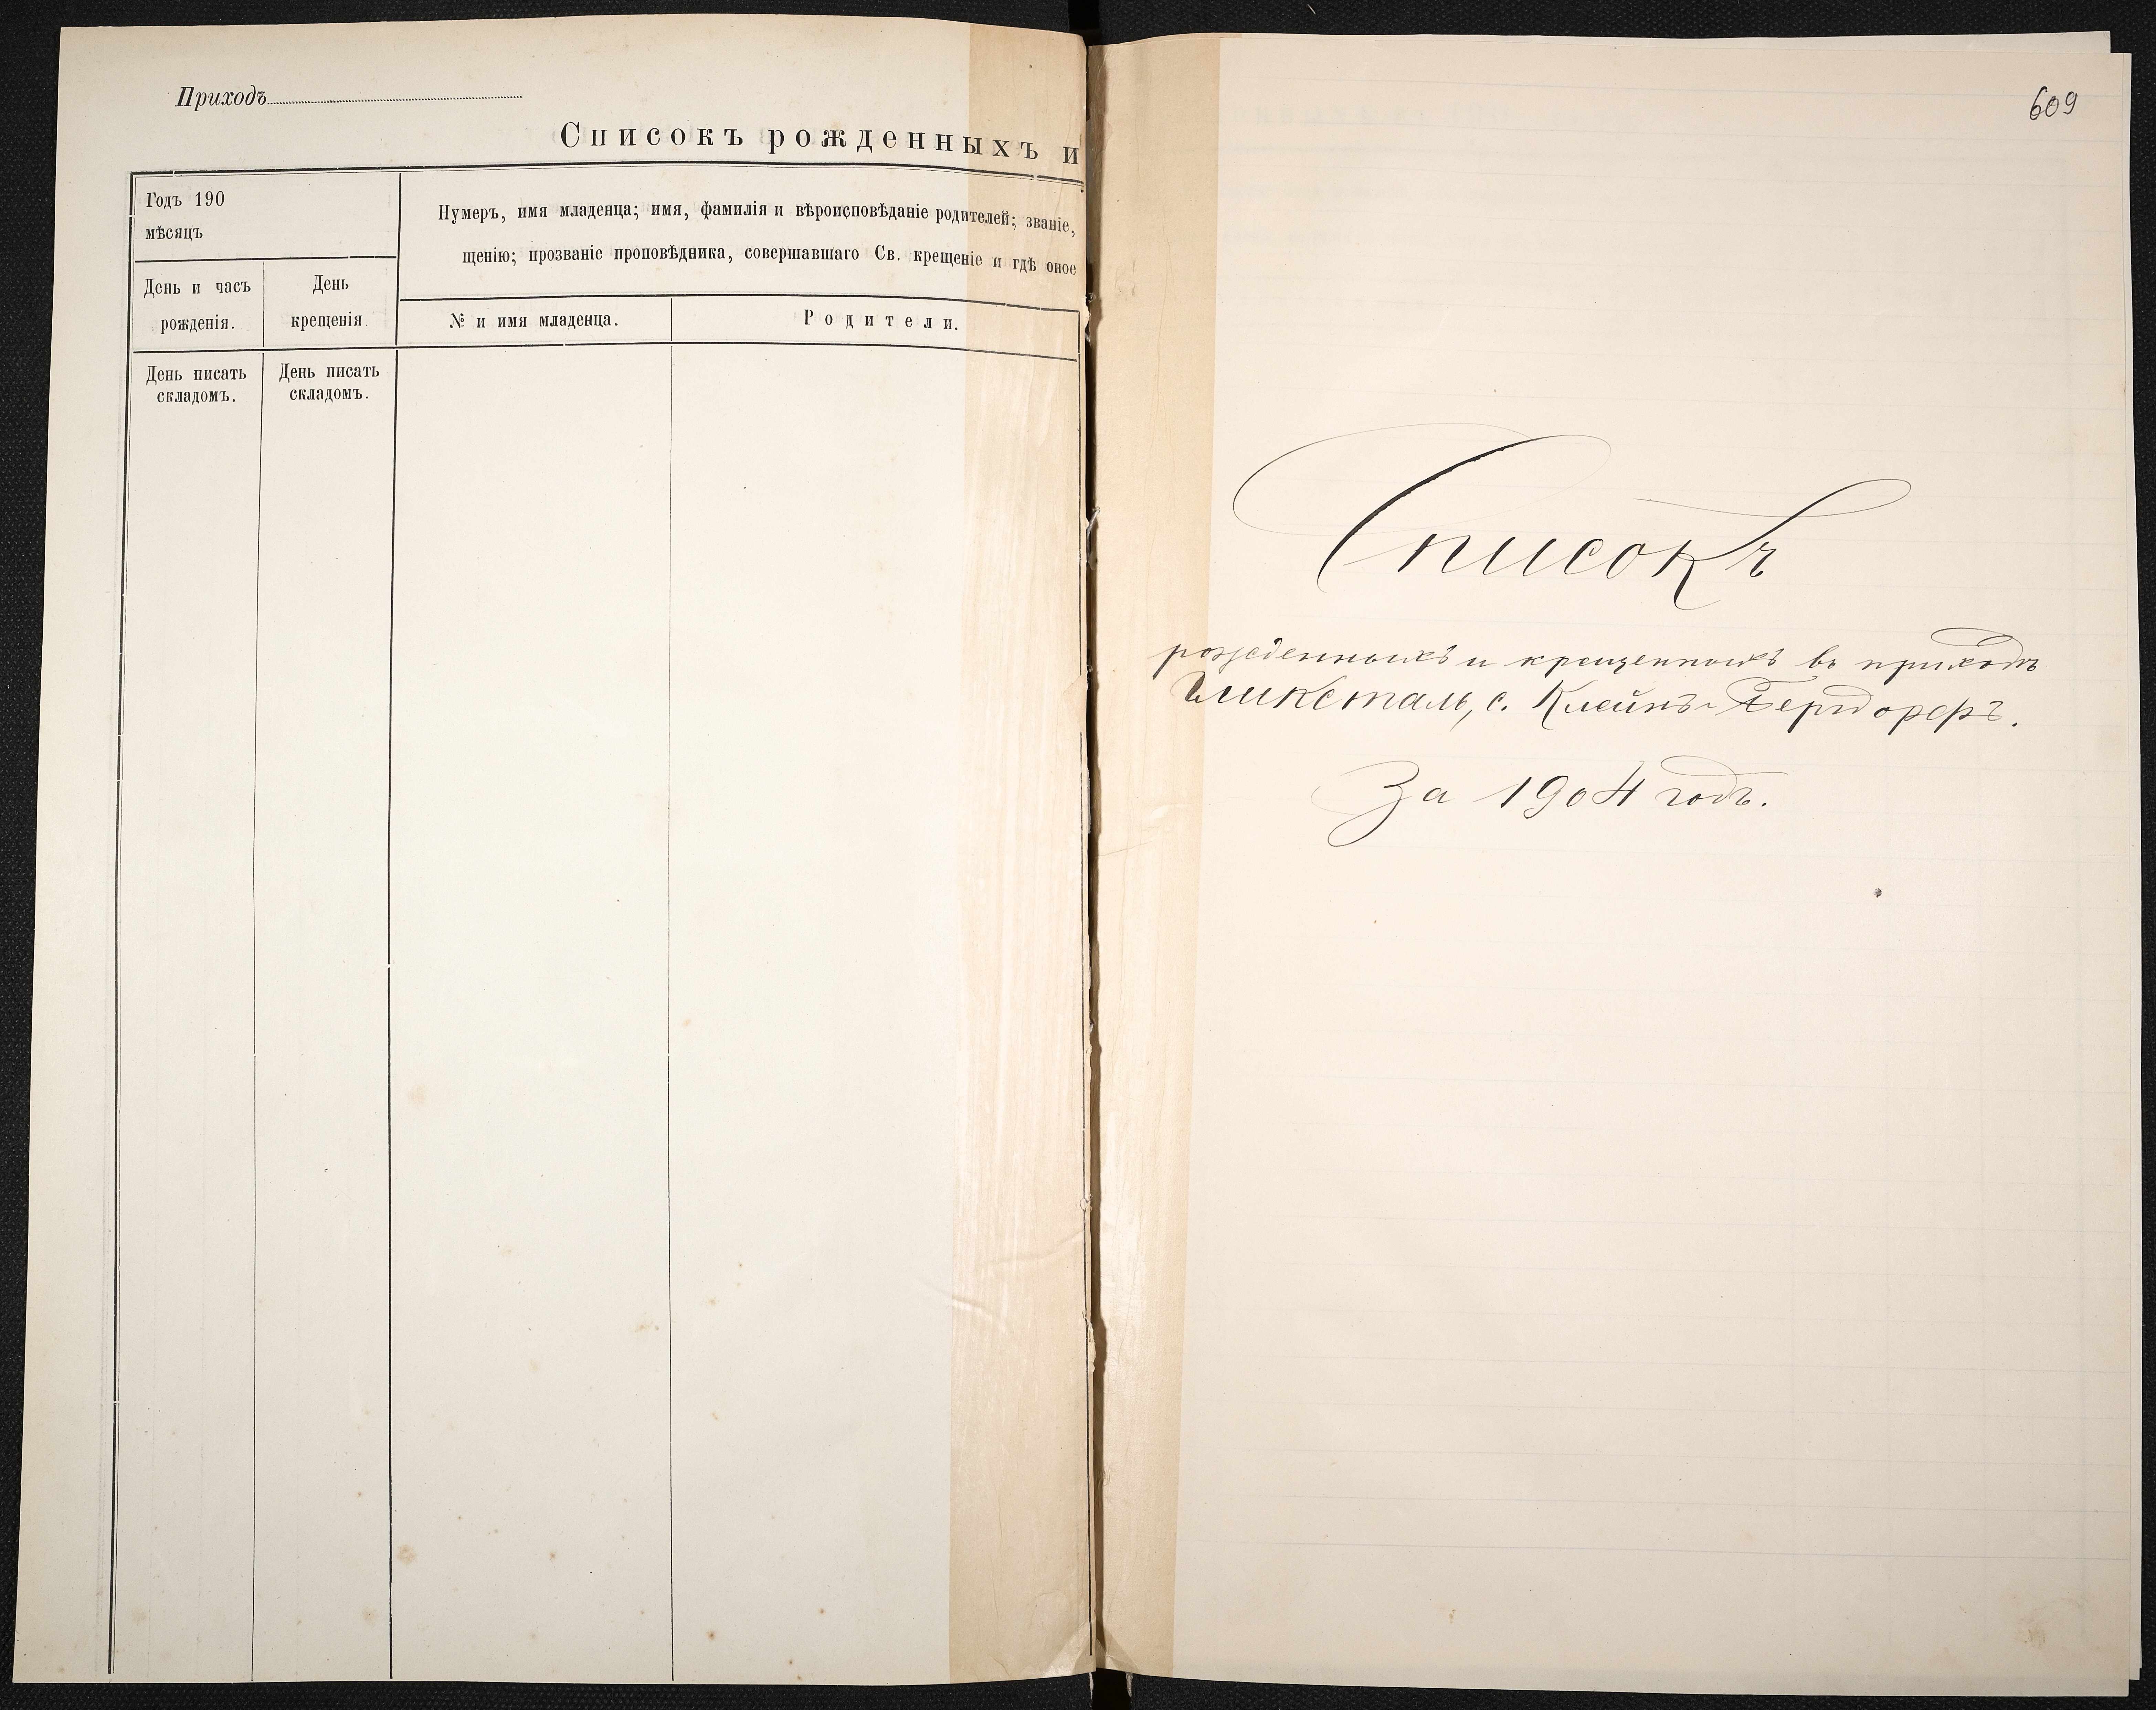 Приходъ
Списокъ рожденныхъ и
Годъ 190
мѣсяцъ
Нумеръ, имя младенца; имя, фамилія и вѣроисповѣданіе родителей; званіе,
щенію; прозваніе проповѣдника, совершавшаго Св. крещеніе и гдѣ оное
День и часъ
рожденія.
День
крещенія.
№ и имя младенца.
Родители.
День писать
складомъ.
День писать
складомъ.
609
Списокъ
рожденныхъ и крещенныхъ въ приходѣ
Глюксталь, с. Клейнъ-Бергдорфъ.
За 1904 годъ.